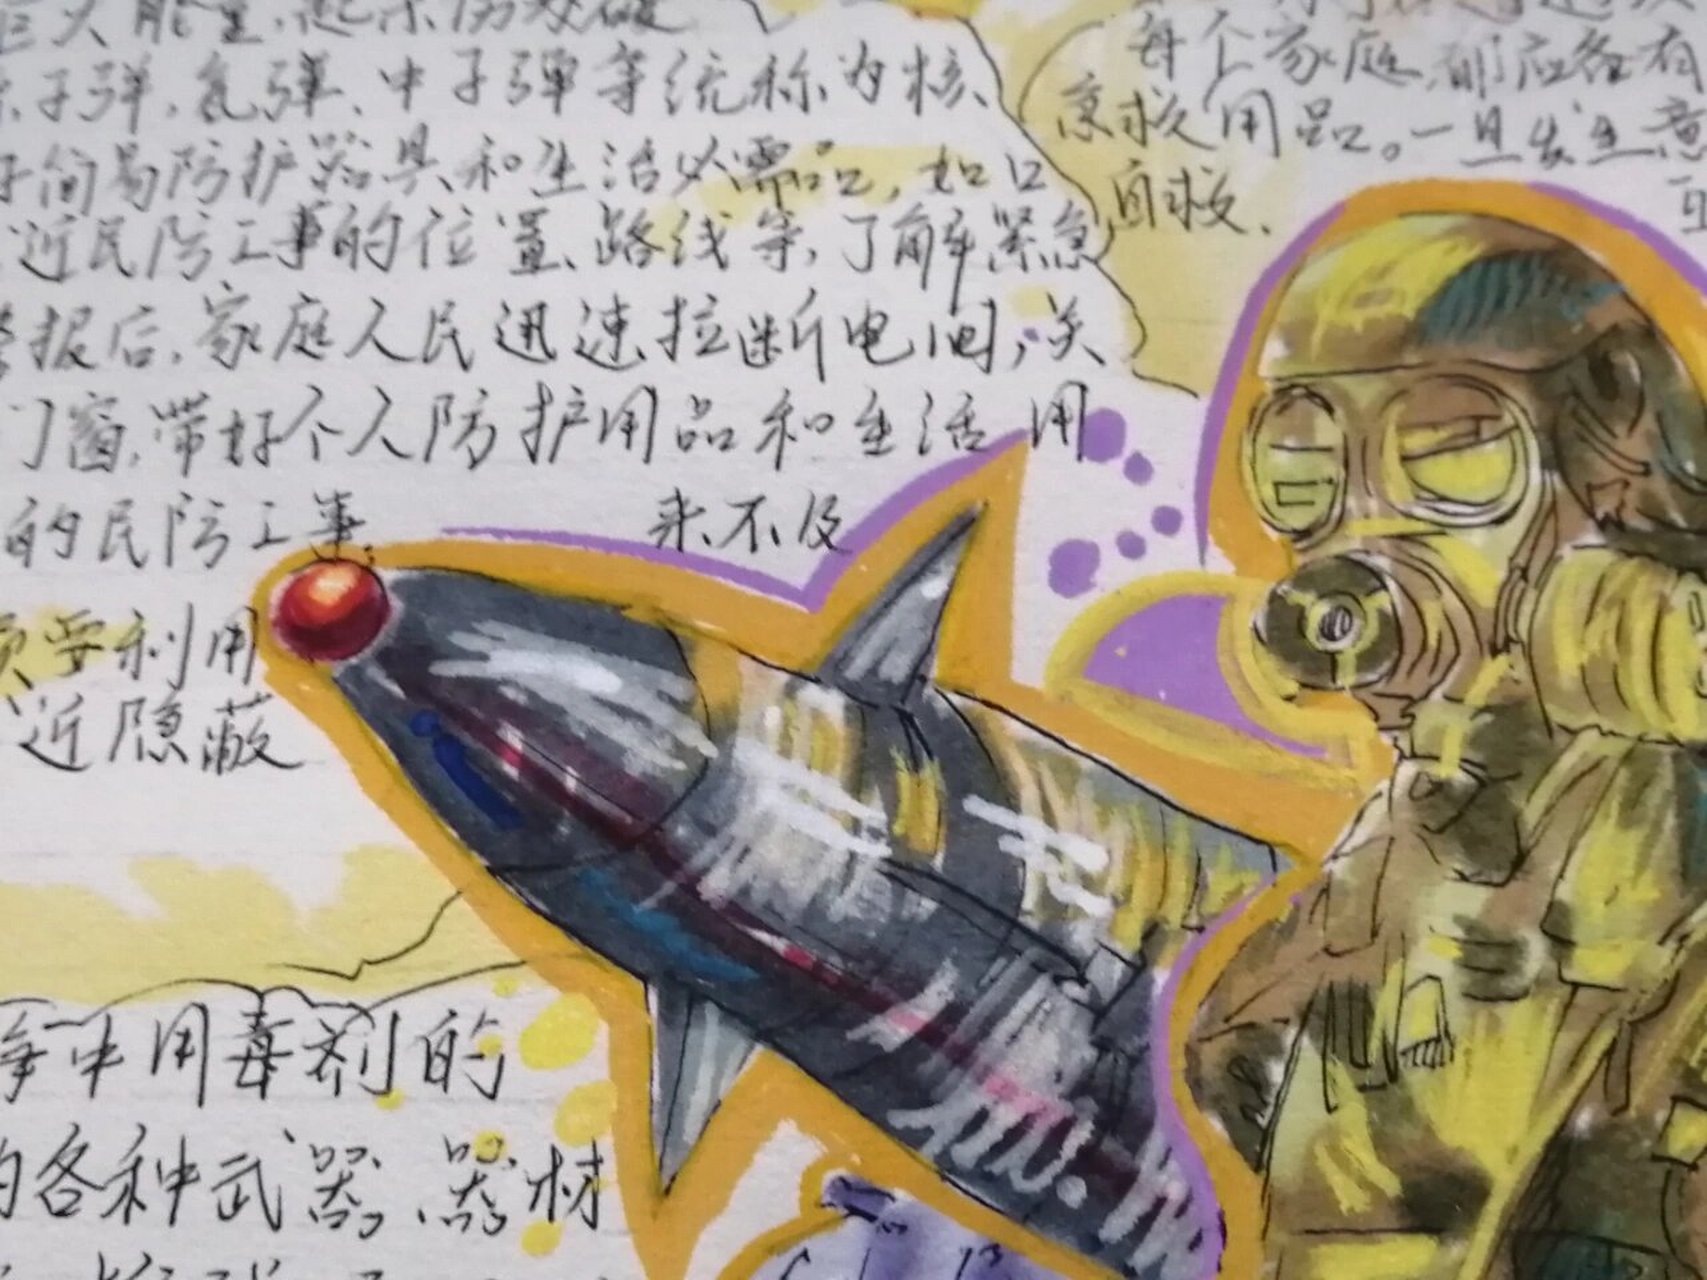 巨大能量,起杀伤破
子弹、氢弹、中子弹等统称为核
好简易防护器具和生活必需品,如口
近民防工事的位置、路线等,了解紧急
警报后,家庭人民迅速拉断电闸,关
门窗,带好个人防护用品和生活用
的民防工事
来不及
要利用
近隐蔽
每个家庭,都应备有
急救用品。一旦发生意
自救.
争中用毒剂的
的各种武器、器材